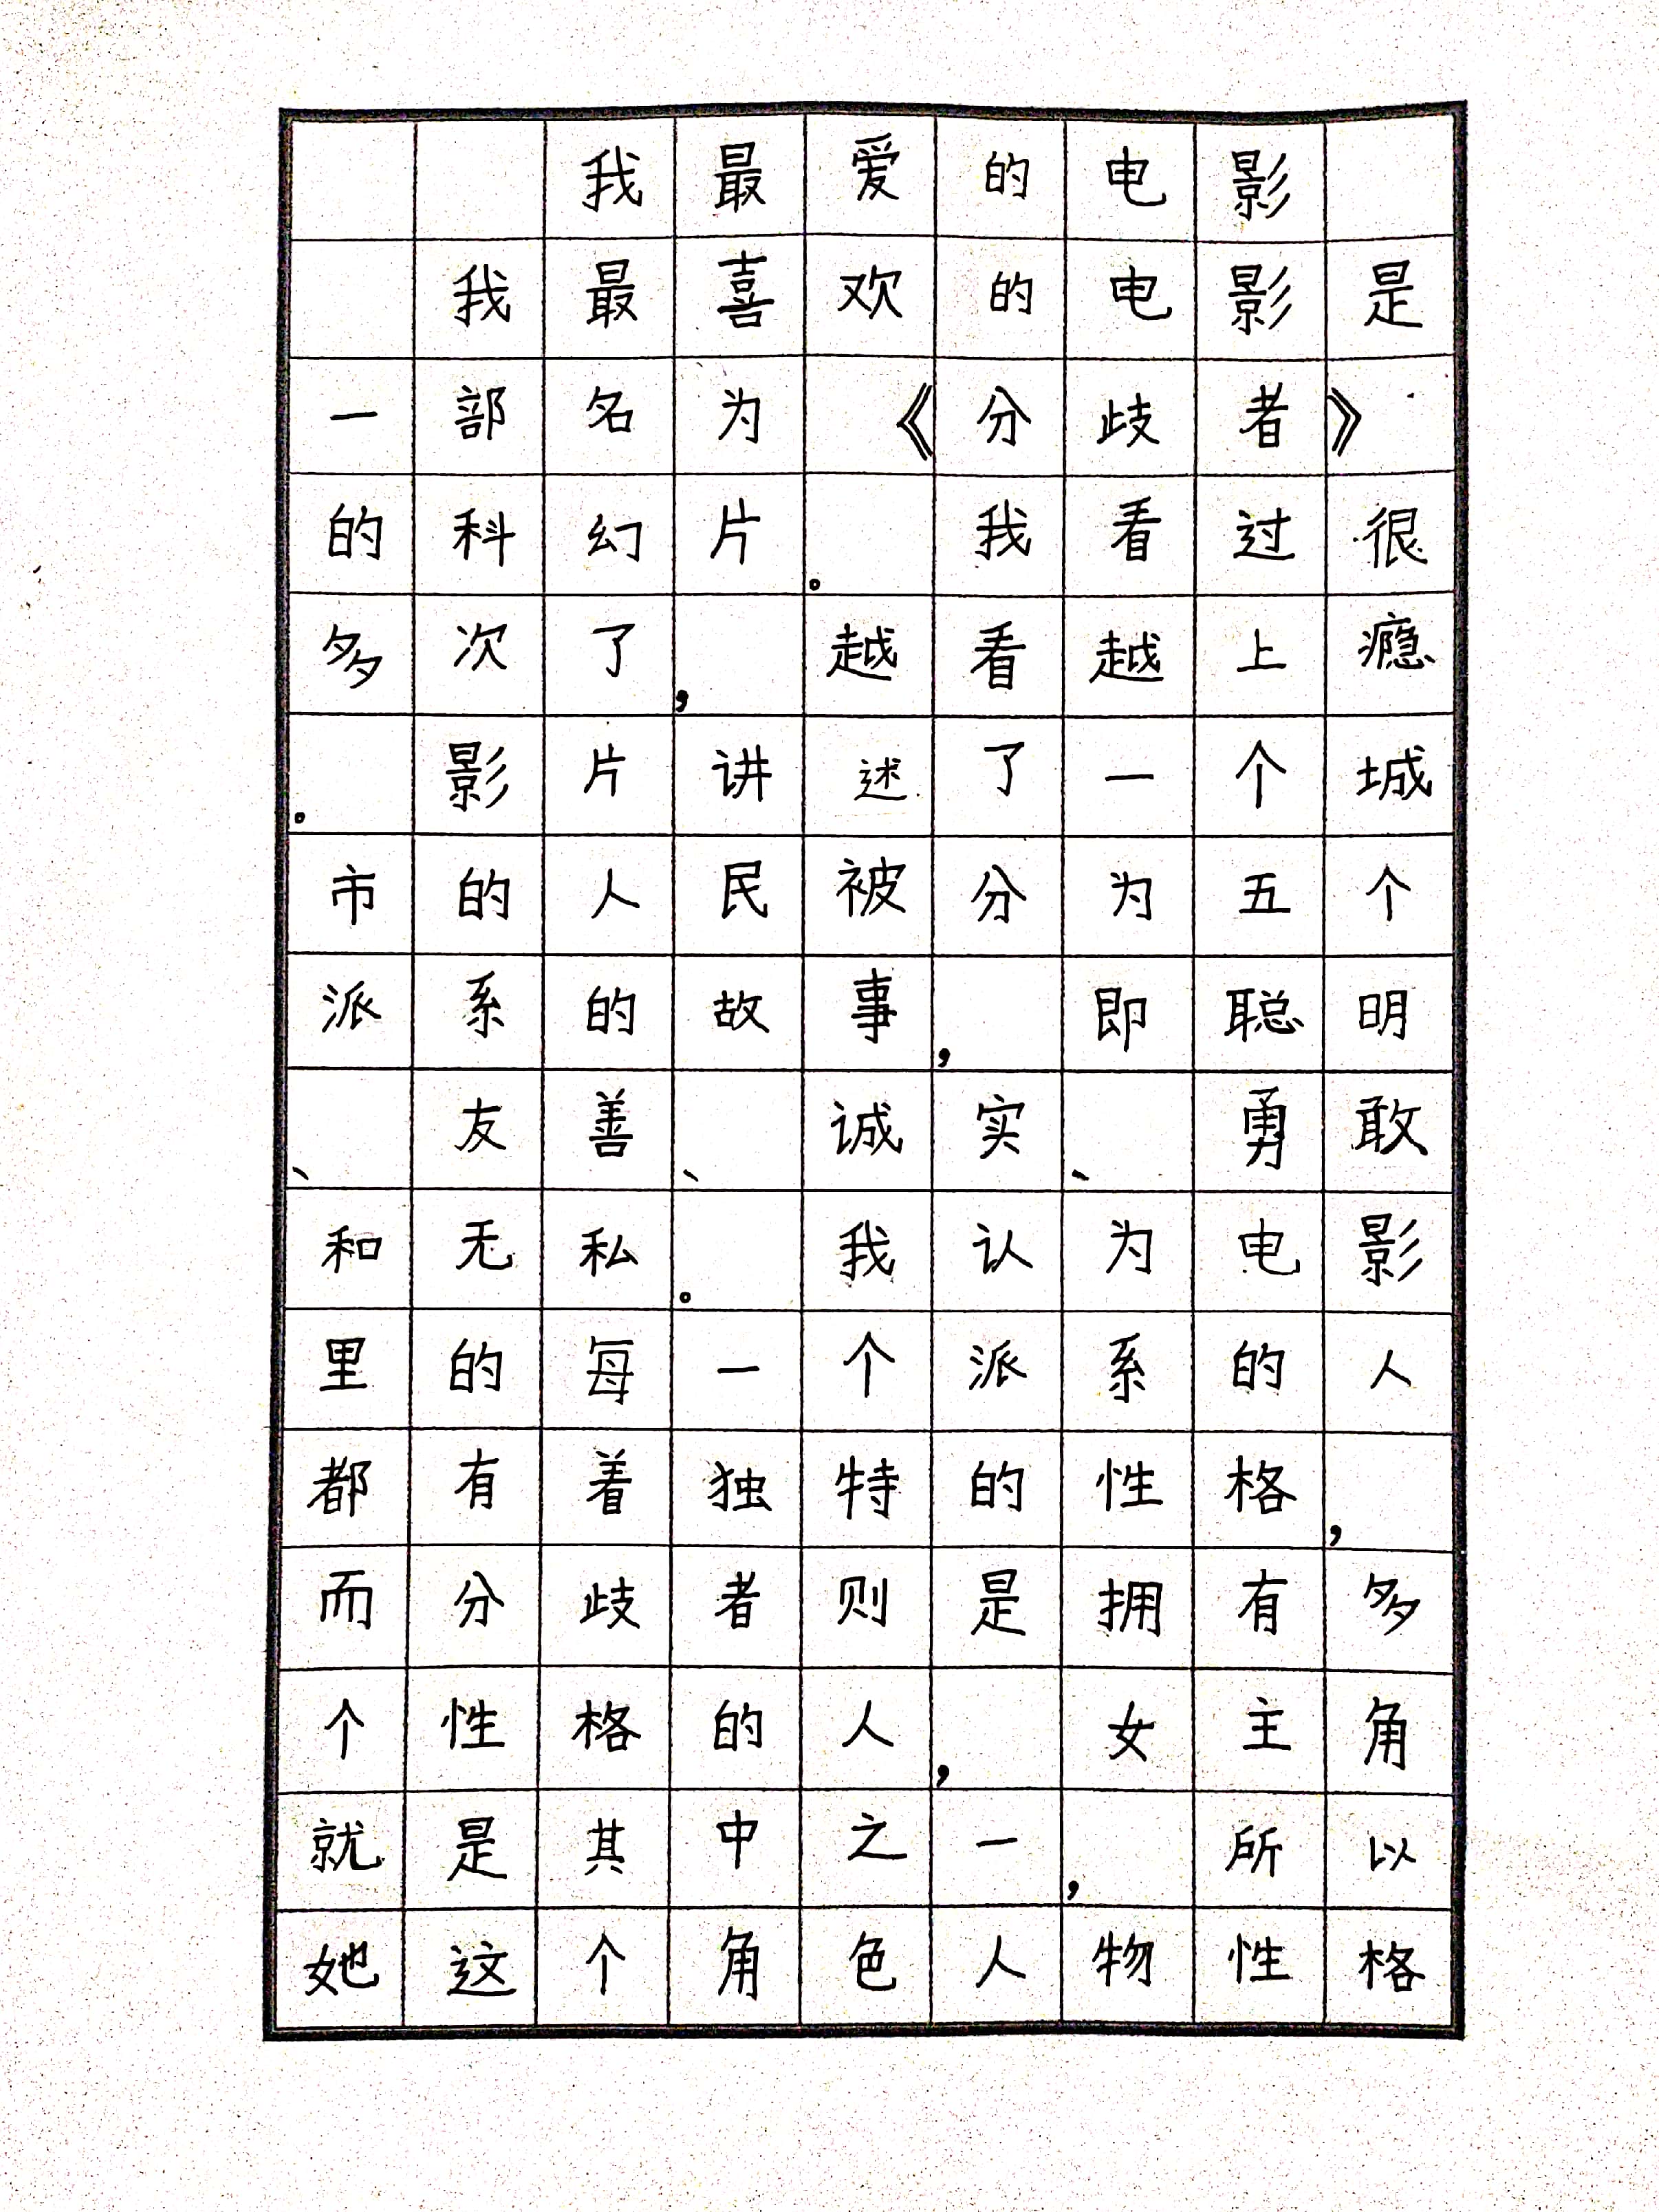 我最爱的电影
我最喜欢的电影是
一部名为《分歧者》
的科幻片。我看过很
多次了，越看越上瘾
。影片讲述了一个城
市的人民被分为五个
派系的故事，即聪明
、友善、诚实、勇敢
和无私。我认为电影
里的每一个派系的人
都有着独特的性格，
而分歧者则是拥有多
个性格的人，女主角
就是其中之一，所以
她这个角色人物性格